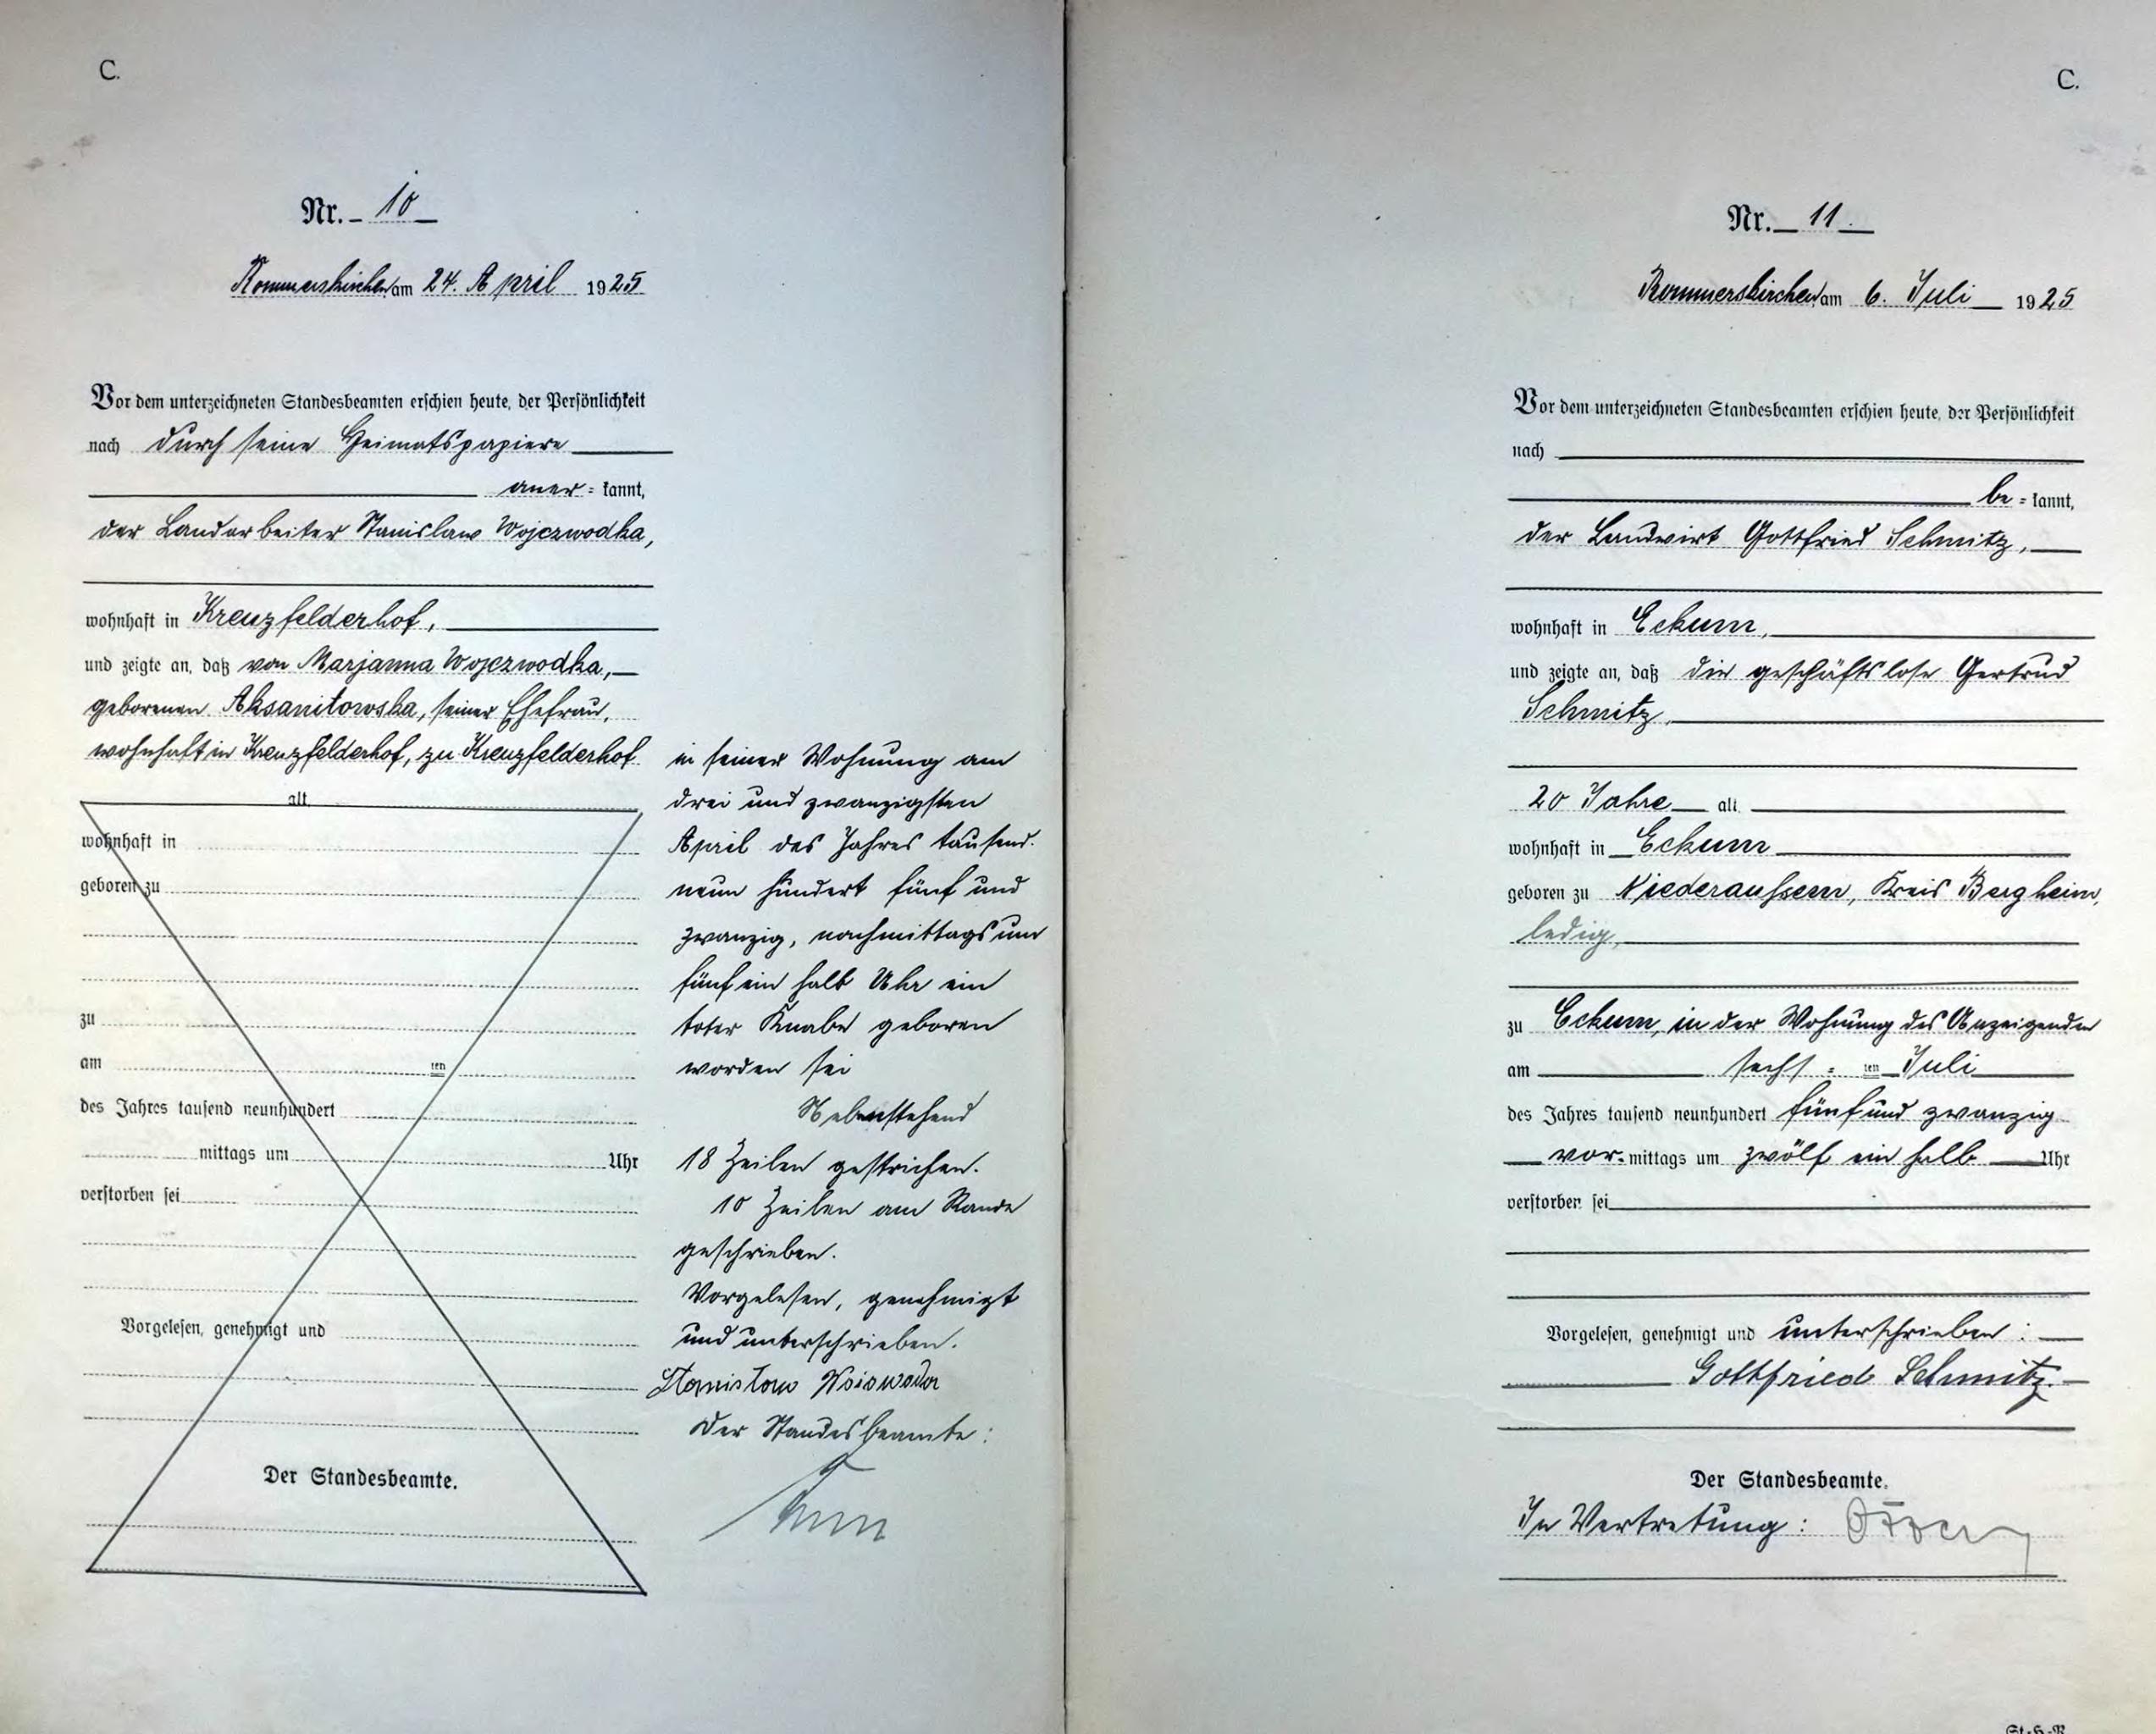 C.
Nr. 10
Rommerskirchen am 24. April 1925
Vor dem unterzeichneten Standesbeamten erschien heute, der Persönlichkeit
nach durch seine Heimatspapiere
aner=kannt,
der Landarbeiter Stanislaw Wojczwodka,
wohnhaft in Kreuzfelderhof,
und zeigte an, daß von Marjanna Wojczwodka,
geborenen Aksanitowska, seiner Ehefrau,
wohnhaft in Kreuzfelderhof, zu Kreuzfelderhof
alt
wohnhaft in
geboren zu
zu
am ten
des Jahres tausend neunhundert
mittags um Uhr
verstorben sei
Vorgelesen, genehmigt und
Der Standesbeamte.
in seiner Wohnung am
drei und zwanzigsten
April des Jahres tausend
neun hundert fünf und
zwanzig, nachmittags um
fünf ein halb Uhr ein
toter Knabe geboren
worden sei
Nebenstehend
18 Zeilen gestrichen.
10 Zeilen am Rande
geschrieben.
Vorgelesen, genehmigt
und unterschrieben.
Stanislaw
Der Standesbeamte:
C.
Nr. 11
Rommerskirchen am 6. Juli 1925
Vor dem unterzeichneten Standesbeamten erschien heute, der Persönlichkeit
nach
be=kannt,
der Landwirt Gottfried Schmitz,
wohnhaft in Eckum,
und zeigte an, daß die geschäftslose Gertrud
Schmitz,
20 Jahre alt
wohnhaft in Eckum
geboren zu Niederaußem, Kreis Bergheim,
ledig,
zu Eckum, in der Wohnung des Anzeigenden
am sechs=ten Juli
des Jahres tausend neunhundert fünf und zwanzig
vor=mittags um zwölf ein halb Uhr
verstorben sei
Vorgelesen, genehmigt und unterschrieben:
Gottfried Schmitz.
Der Standesbeamte.
In Vertretung: